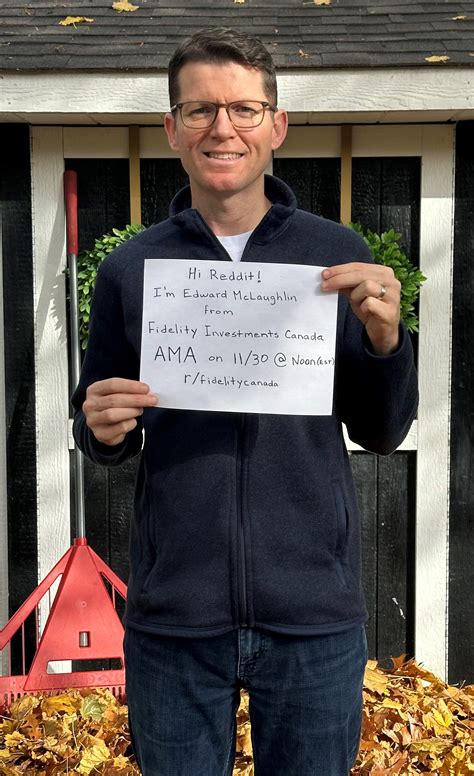 Hi Reddit!
I'm Edward McLaughlin
from
Fidelity Investments Canada
AMA on 11/30 @ Noon(EST)
r/fidelitycanada